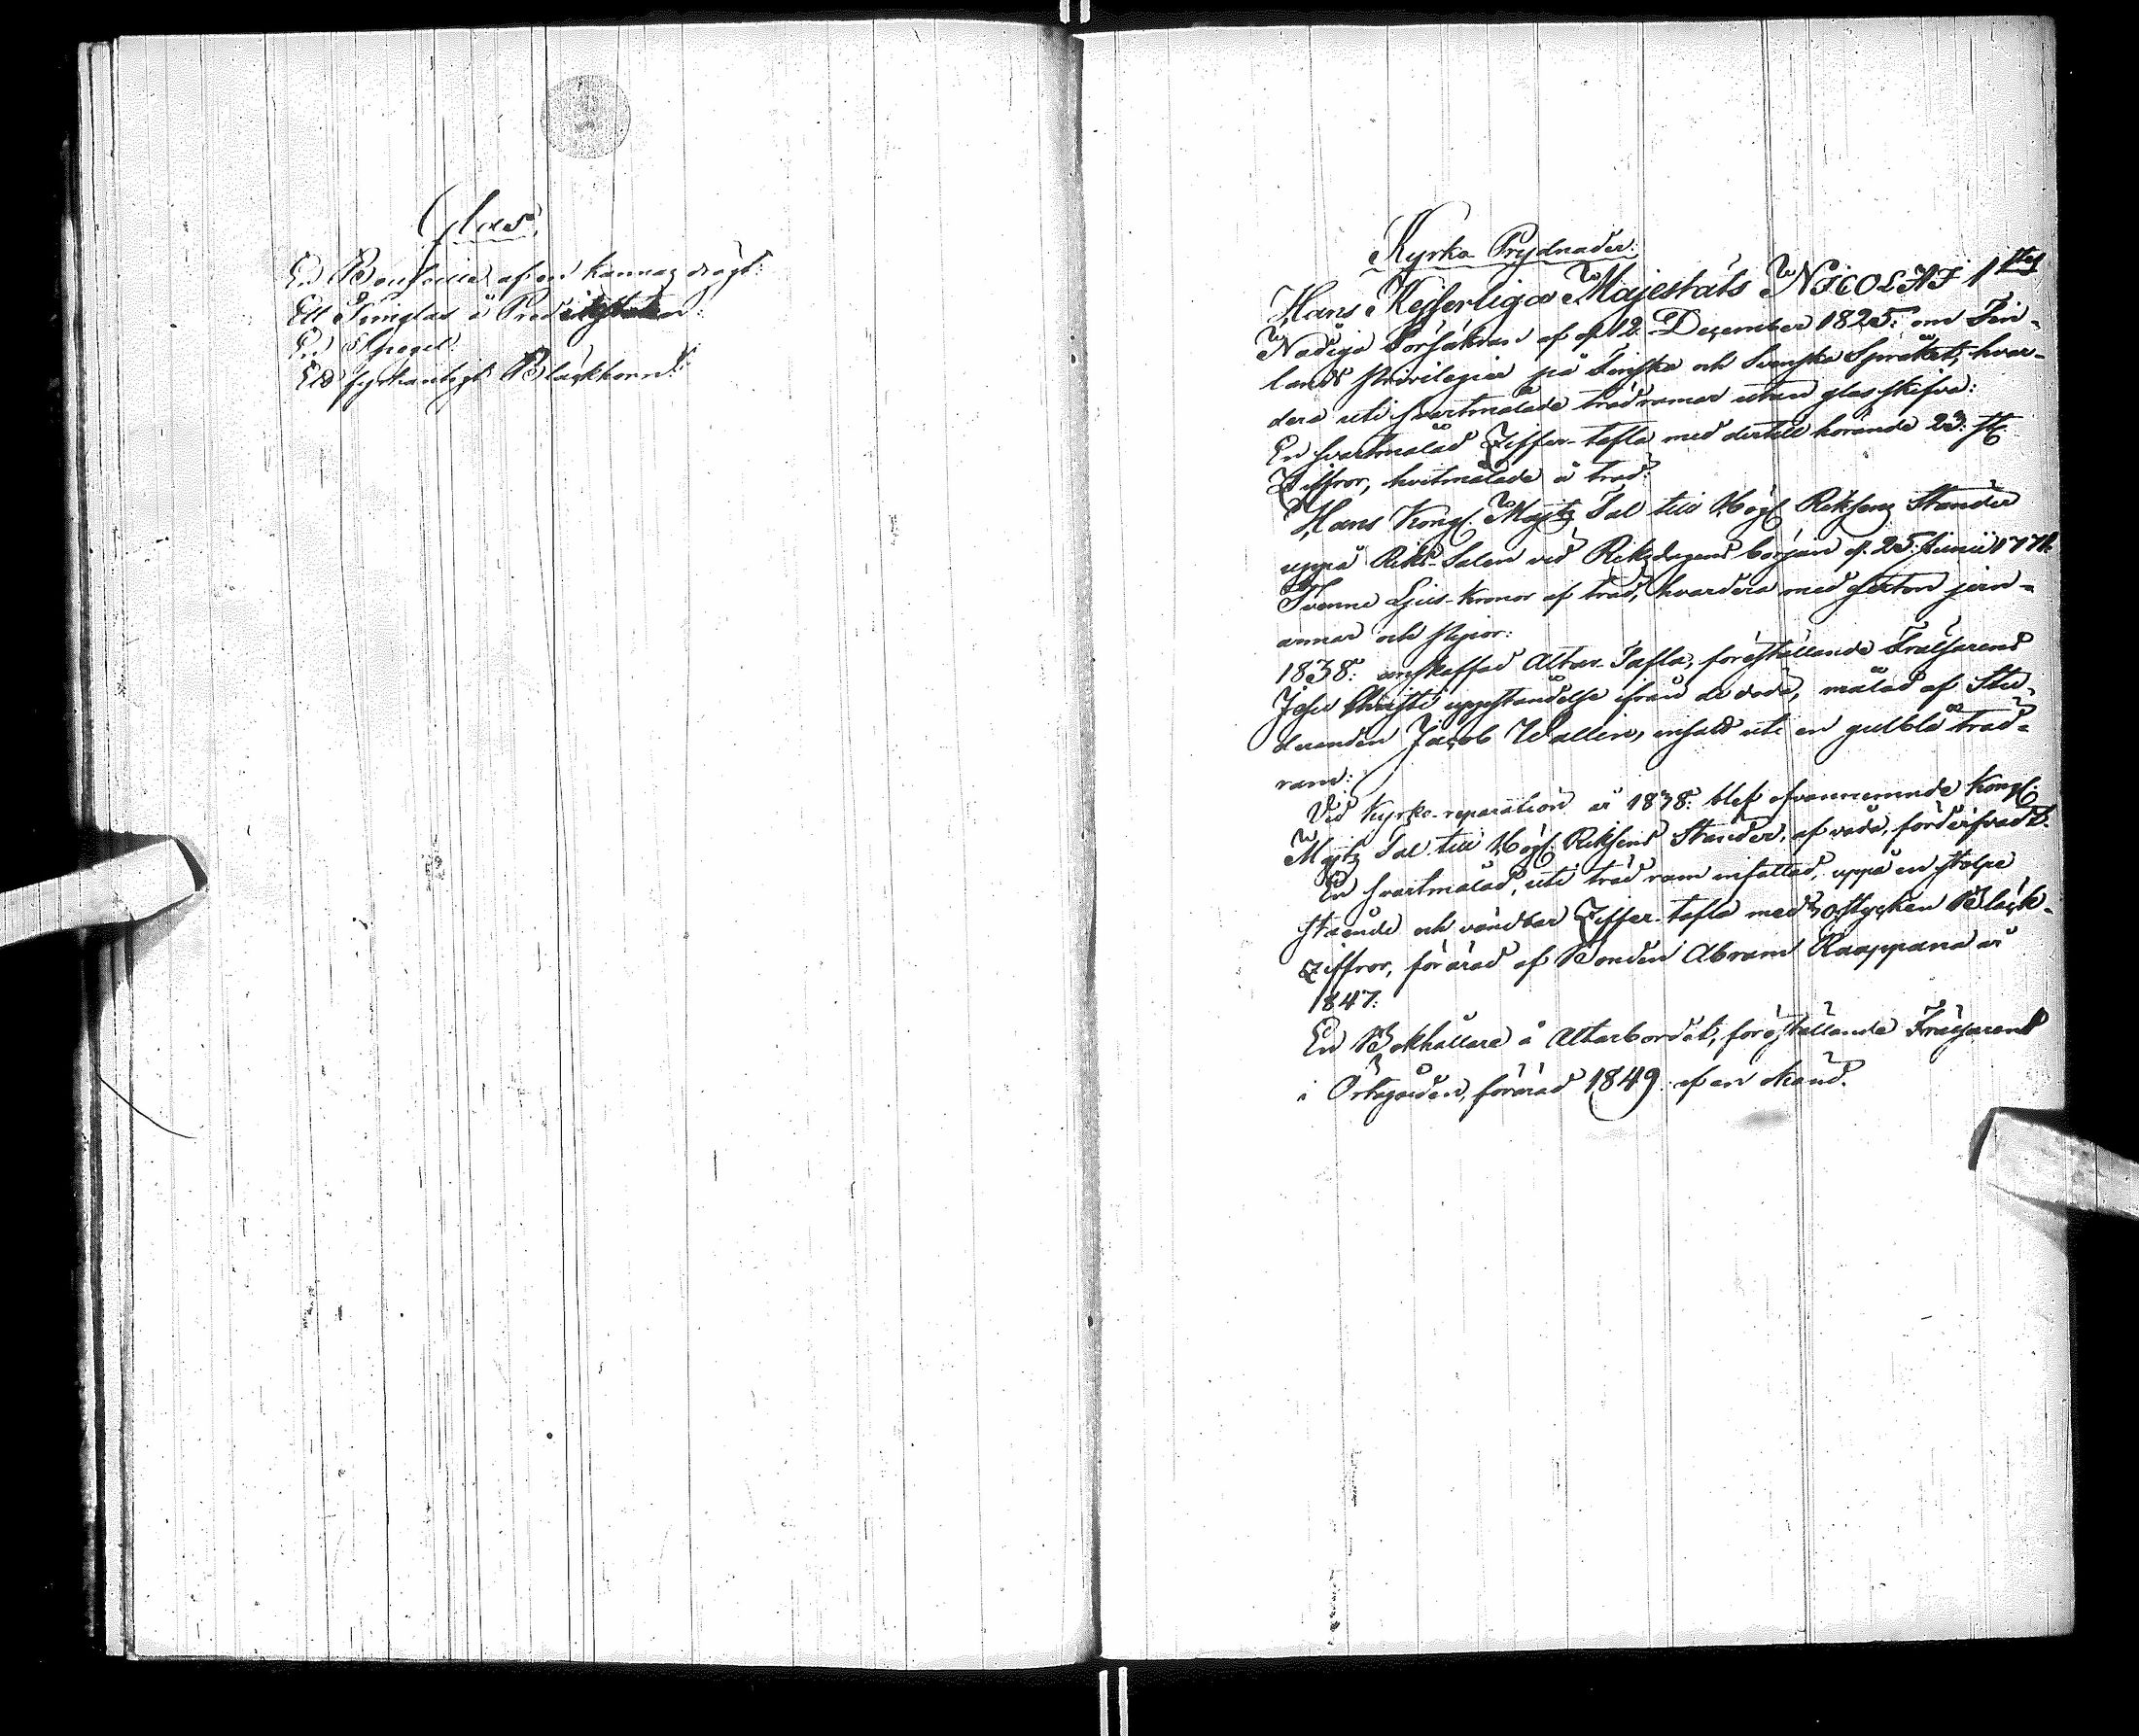 Glas.
En Bouteille af en kannas drägt:
Ett Timglas å Predikstolen:
En Spegel:
Ett fyrkantigt Bläckhorn:
Kyrko Prydnader:
Hans Kejserliga Majestäts NICOLAI 1stes
Nådiga Försäkran af d. 12. December 1825: om Fin-
lands Privilegier på Finska och Svenska Språket, hvar-
dera uti svartmålade trädramar utan glasskifva:
En svartmålad Ziffer-tafla med dertill hörande 23: st.
Ziffror, hvitmålade å träd:
Hans Kongl. Majtz Tal till Högl. Riksens Ständer
uppå Riks-Salen vid Riksdagens början d. 25. Junii 1771.
Tvenne Ljus-Kronor af träd, hvardera med sexton jern-
armar och pipor:
1838: anskaffad Altar-Tafla, föreställande Frälsarens
Jesu Christi uppståndelse ifrån de döda, målad af Stu-
deranden Jacob Wallin, infald uti en gulblå träd-
ram:
Vid Kyrko-reparation år 1838: blef ofvannemnde Kongl.
Majtz Tal till Högl. Riksens Ständer, af våda, förderfvadt.
En svartmålad, uti träd ram infattad, uppå en stolpe
stående och vändbar Ziffer-tafla med 30 stycken Bläck-
Ziffror, förärad af Bonden Abram Kaappana år
1847:
En Bokhållare å Altarbordet, föreställande Frälsarens
i Örtegården, förärad 1849 af en okänd.